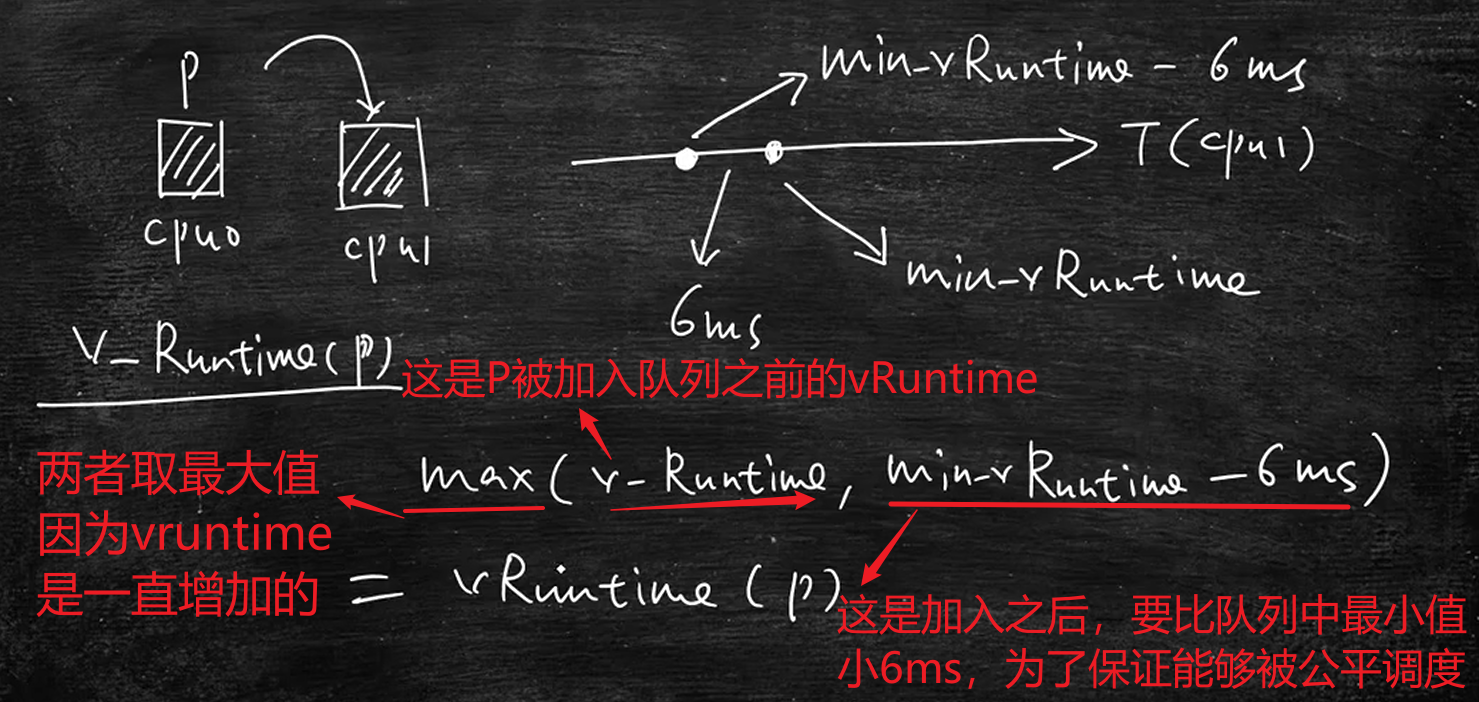 P
cpu0
cpu1
min-vRuntime - 6ms
T(cpu1)
6ms
min-vRuntime
v-Runtime(p)
这是P被加入队列之前的vRuntime
两者取最大值
因为vruntime
是一直增加的
max(v-Runtime, min-vRuntime -6ms)
= vRuntime(p)
这是加入之后，要比队列中最小值
小6ms，为了保证能够被公平调度